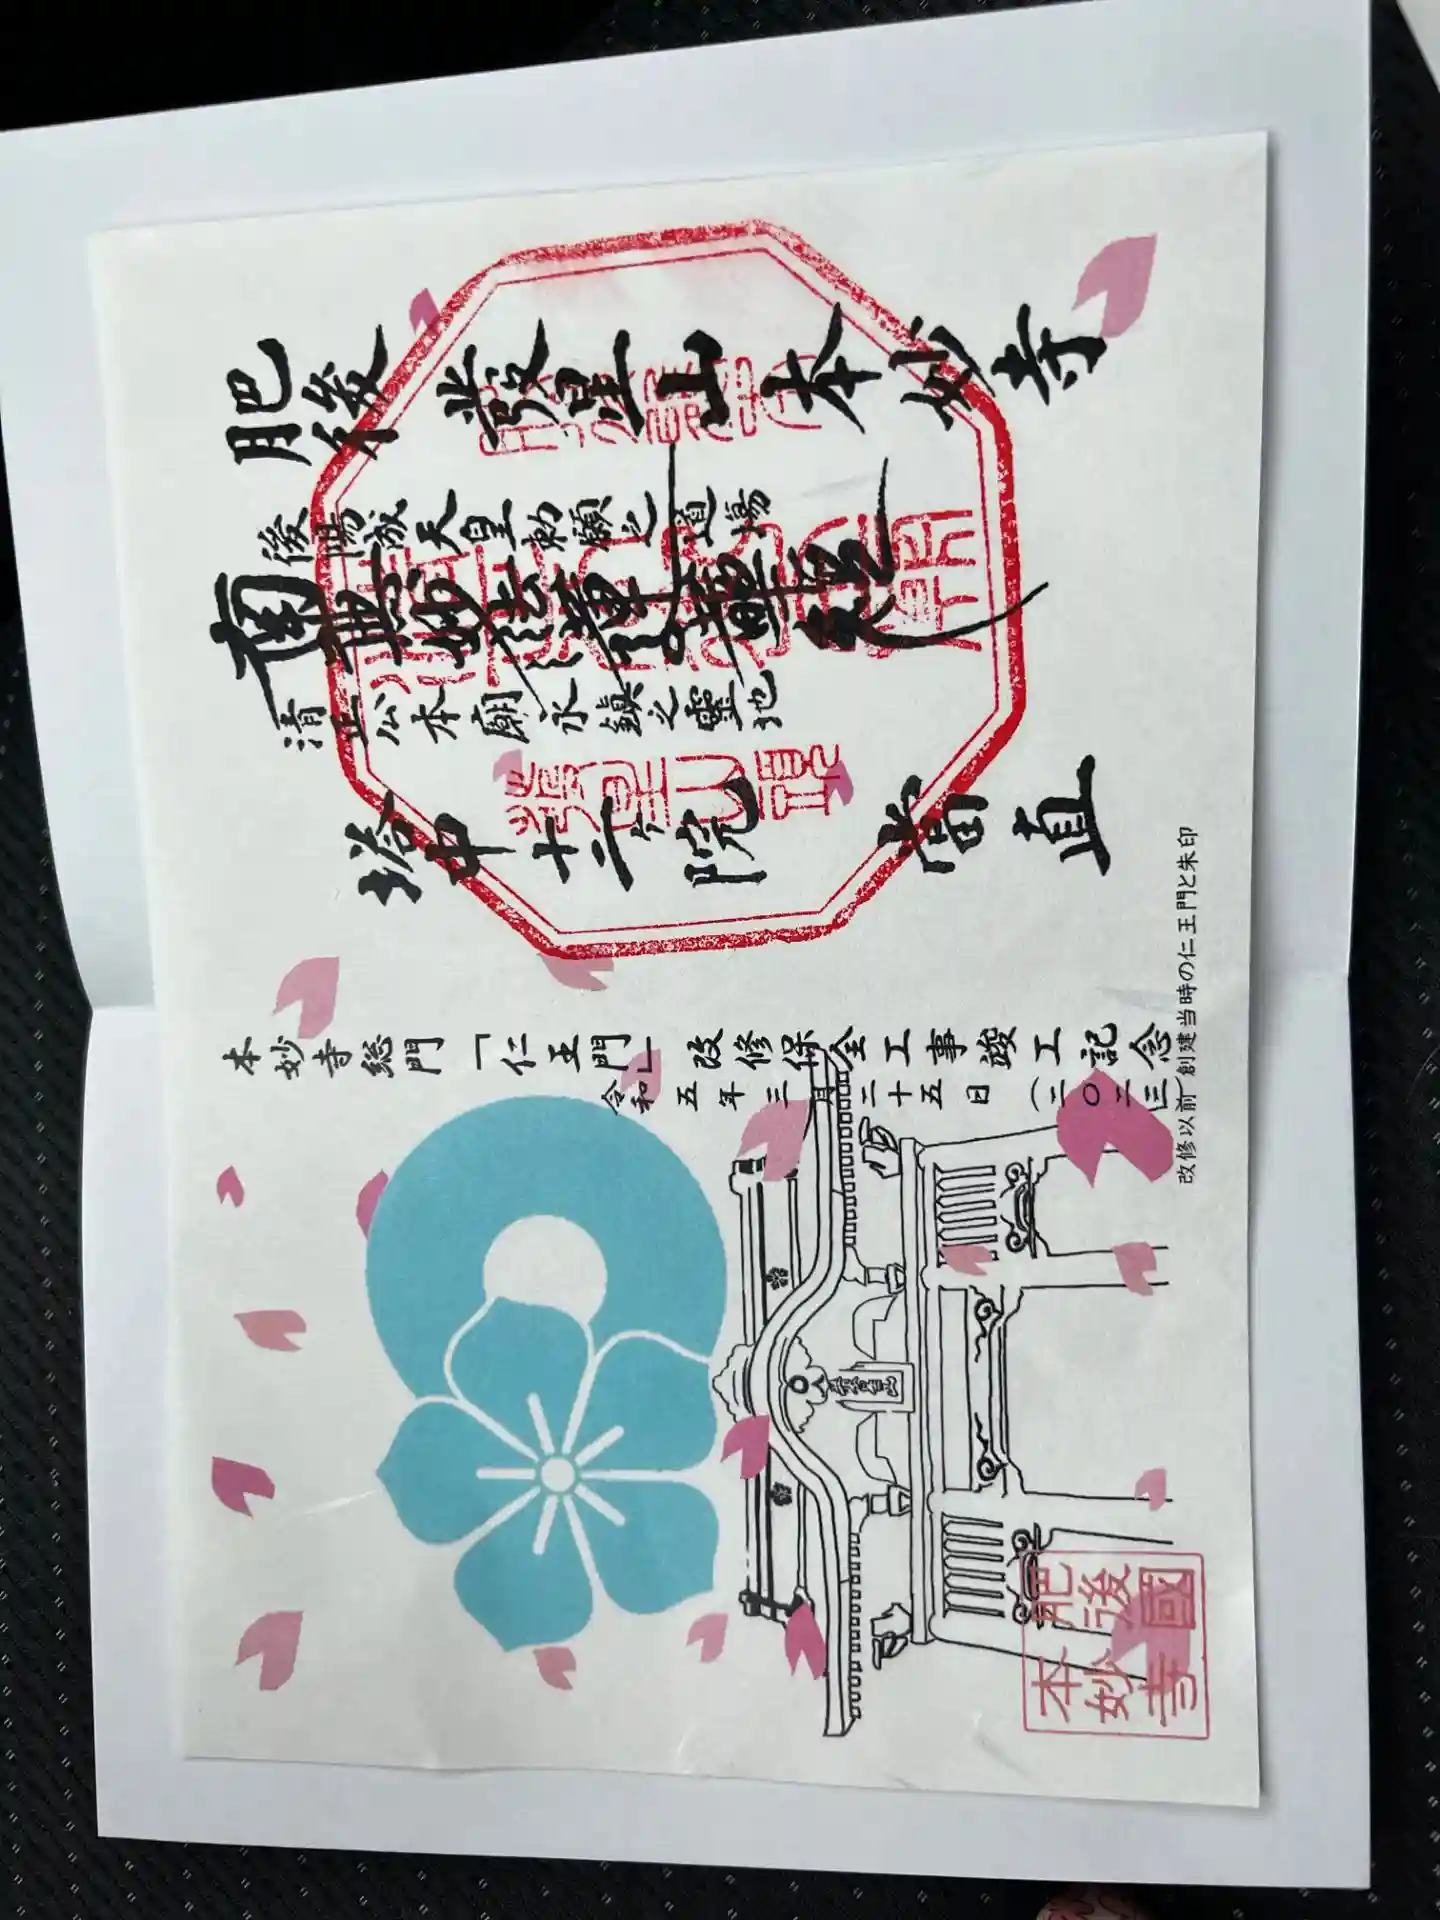 肥後 發星山 本妙寺
後陽成天皇勅願之道場
南無妙法蓮華経
清正公本廟永鎮之靈地
塔中十二ヶ院 當直
本妙寺総門「仁王門」改修保全工事竣工記念
令和五年三月二十五日(二〇二三)
改修以前 創建当時の仁王門と朱印
肥後國
本妙寺